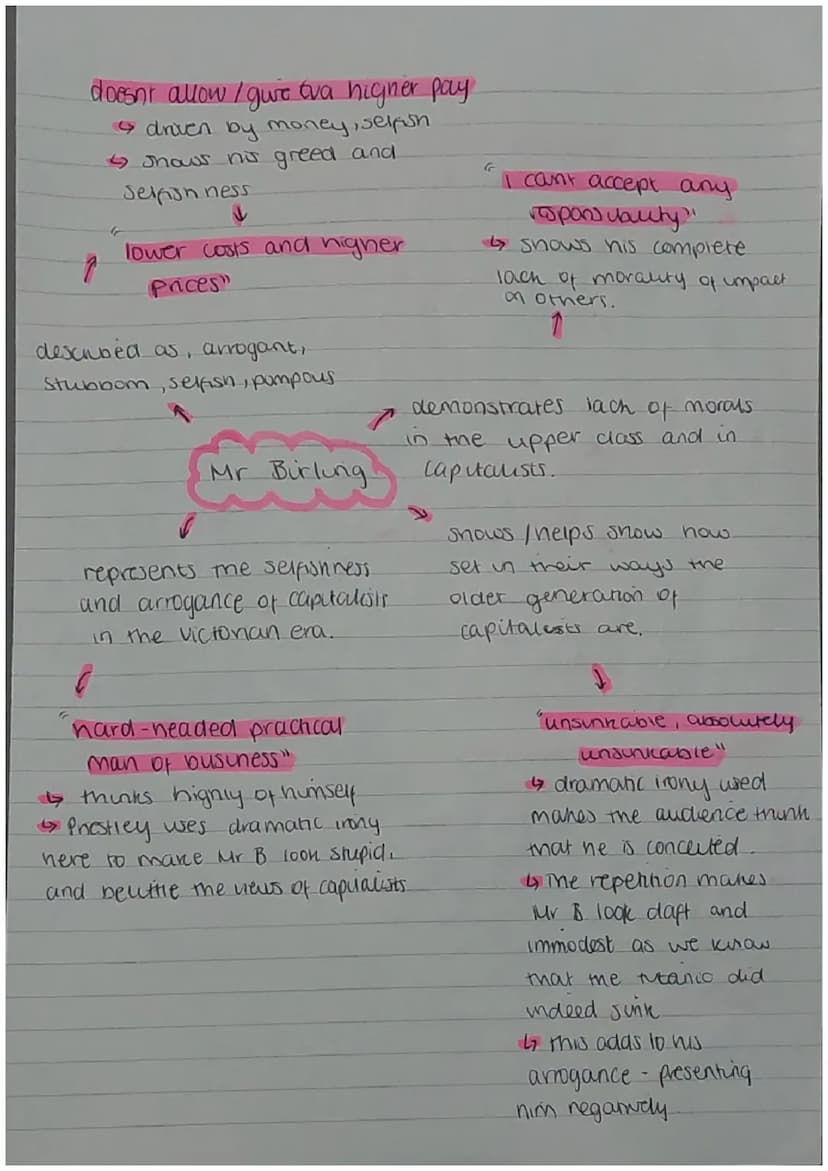 doesnt allow / give Eva higher pay
↳ driven by money, selfish
↳ shows his greed and
selfishness
"lower costs and higher
prices"
"I cant accept any
responsibility"
↳ shows his complete
lack of morality of impact
on others.
described as, arrogant,
stubborn, selfish, pompous
demonstrates lack of morals
in the upper class and in
capitalists.
Mr Birling
shows / helps show how
set in their ways the
older generation of
capitalists are.
represents the selfishness
and arrogance of capitalists
in the victorian era.
"hard-headed practical
man of business"
↳ thinks highly of himself
↳ Priestley uses dramatic irony
here to make Mr B look stupid,
and belittle the views of capitalists
"unsinkable, absolutely
unsinkable"
↳ dramatic irony used
makes the audience think
that he is conceited.
↳ The repetition makes
Mr B look daft and
immodest as we know
that the titanic did
indeed sink
↳ this adds to his
arrogance - presenting
him negatively